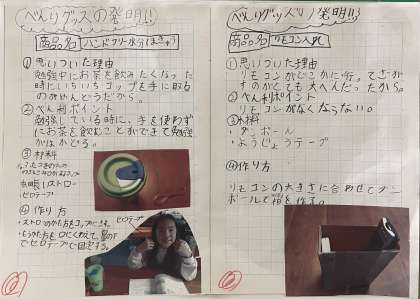 べんりグッズの発明!!
商品名 ハンドフリー水分ほきゅう
①思いついた理由
勉強中にお茶を飲みたくなった
時にいちいちコップを手に取る
のがめんどうだから。
②べん利ポイント
勉強している時に、手を使わず
にお茶を飲むことができて勉強
がはかどる。
③材料
・ふたつきのコップ
・ストロー
・セロテープ
④作り方
・ストローの
でセロテープで固定する。
セロテープ
べんりグッズの発明!!
商品名 リモコン入れ
①思いついた理由
リモコンがどこかに行ってさが
すのがとても大へんだったから。
②べん利ポイント
リモコンがなくならない。
③材料
・ダンボール
・ようじょうテープ
④作り方
リモコンの大きさに合わせてダン
ボールで箱を作る。